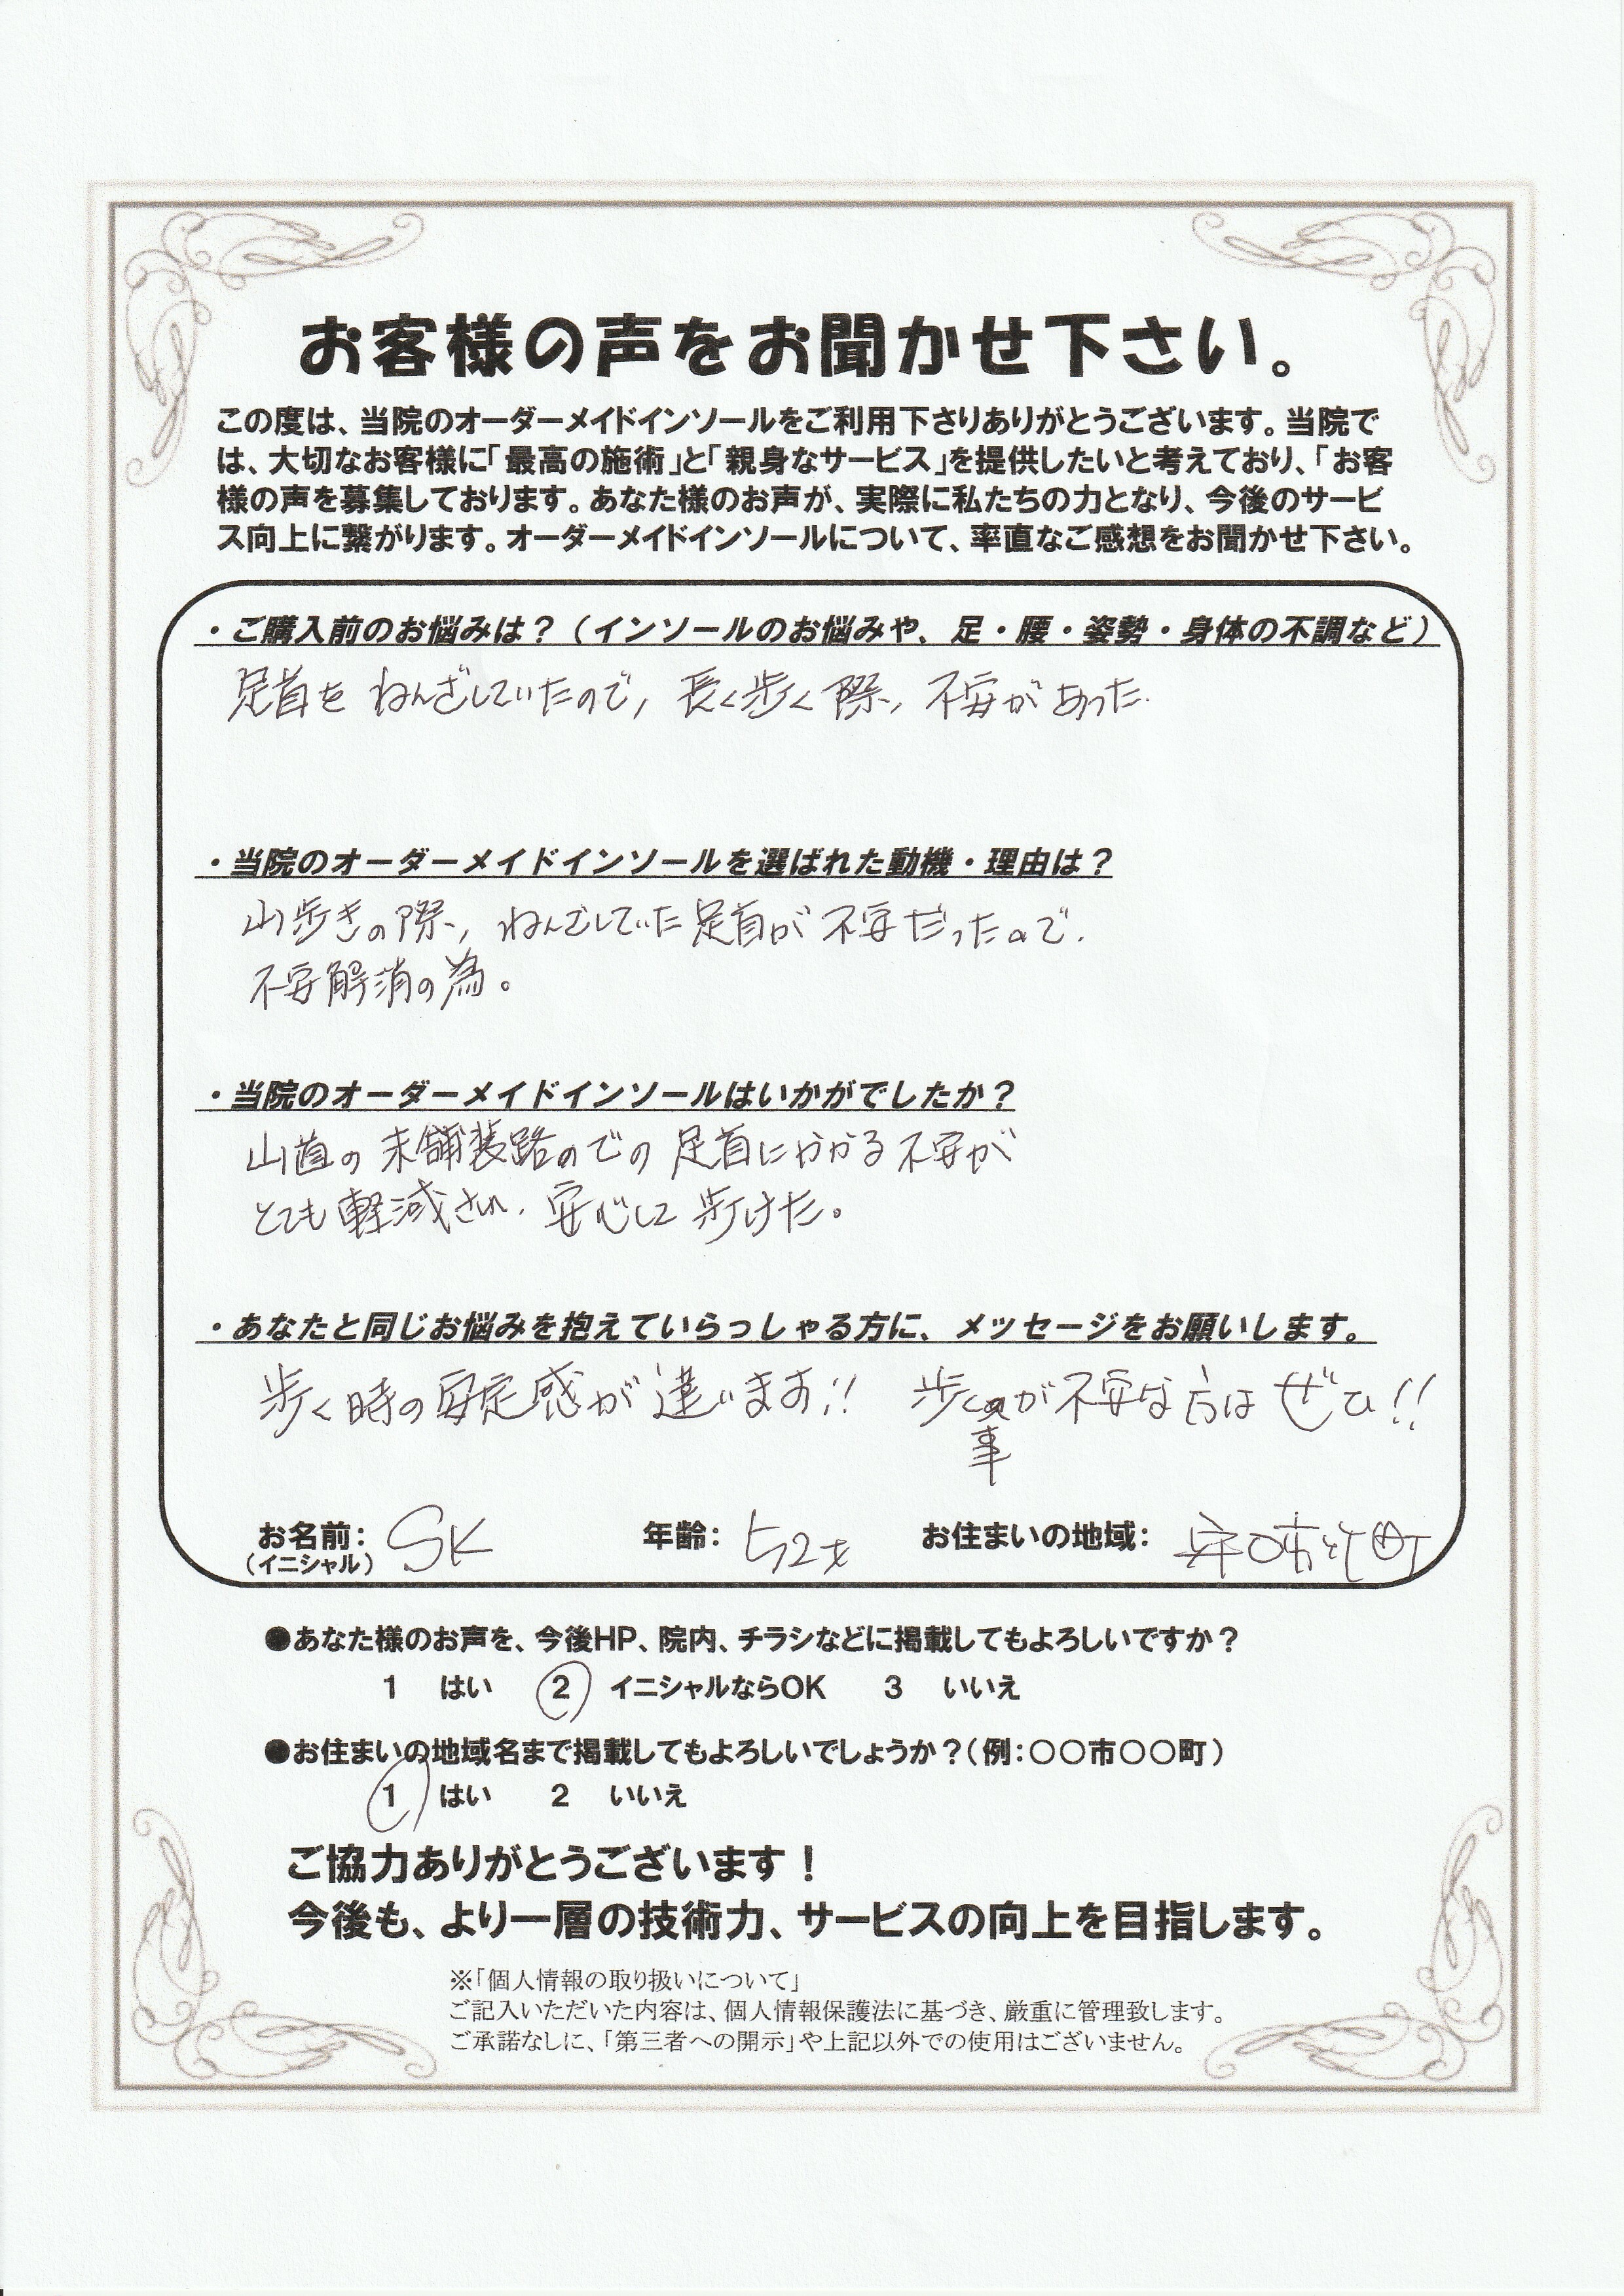 お客様の声をお聞かせ下さい。
この度は、当院のオーダーメイドインソールをご利用下さりありがとうございます。当院で
は、大切なお客様に「最高の施術」と「親身なサービス」を提供したいと考えており、「お客
様の声を募集しております。あなた様のお声が、実際に私たちの力となり、今後のサービ
ス向上に繋がります。オーダーメイドインソールについて、率直なご感想をお聞かせ下さい。
・ご購入前のお悩みは？（インソールのお悩みや、足・腰・姿勢・身体の不調など）
足首をねんざしていたので、長く歩く際、不安があった.
・当院のオーダーメイドインソールを選ばれた動機・理由は？
山歩きの際、ねんざしていた足首が不安だったので.
不安解消の為。
・当院のオーダーメイドインソールはいかがでしたか？
山道の未舗装路のでの足首にかかる不安が
とても軽減され、安心して歩けた。
・あなたと同じお悩みを抱えていらっしゃる方に、メッセージをお願いします。
歩く時の安定感が違います!! 歩く事が不安な方はぜひ!!
お名前： SK 年齢： 52才 お住まいの地域： 町
（イニシャル）
●あなた様のお声を、今後HP、院内、チラシなどに掲載してもよろしいですか？
1 はい 2 イニシャルならOK 3 いいえ
●お住まいの地域名まで掲載してもよろしいでしょうか？（例：○○市○○町）
1 はい 2 いいえ
ご協力ありがとうございます！
今後も、より一層の技術力、サービスの向上を目指します。
※「個人情報の取り扱いについて」
ご記入いただいた内容は、個人情報保護法に基づき、厳重に管理致します。
ご承諾なしに、「第三者への開示」や上記以外での使用はございません。